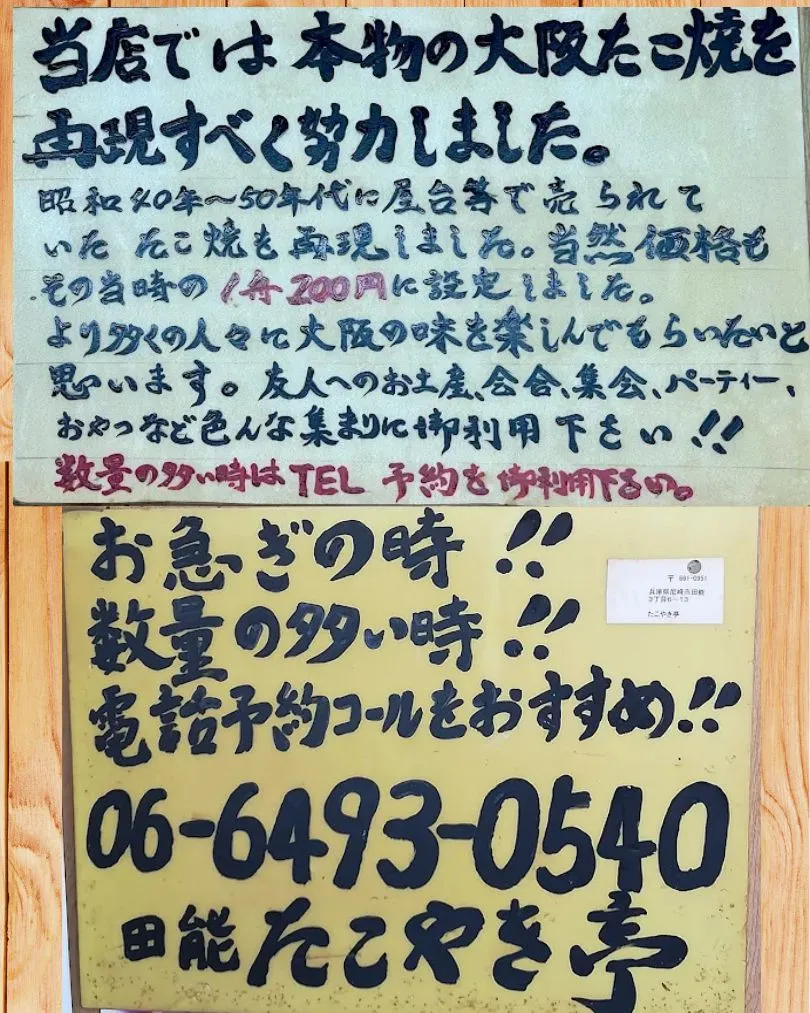 当店では本物の大阪たこ焼を
再現すべく努力しました。
昭和40年～50年代に屋台等で売られて
いたたこ焼を再現しました。当然価格も
その当時の1舟200円に設定しました。
より多くの人々に大阪の味を楽しんでもらいたいと
思います。友人へのお土産、会合、集会、パーティー、
おやつなど色んな集まりに御利用下さい!!
数量の多い時はTEL 予約を御利用下さい。
お急ぎの時!!
〒 661-0951
兵庫県尼崎市田能
3丁目6-13
たこやき亭
数量の多い時!!
電話予約コールをおすすめ!!
06-6493-0540
田能たこやき亭